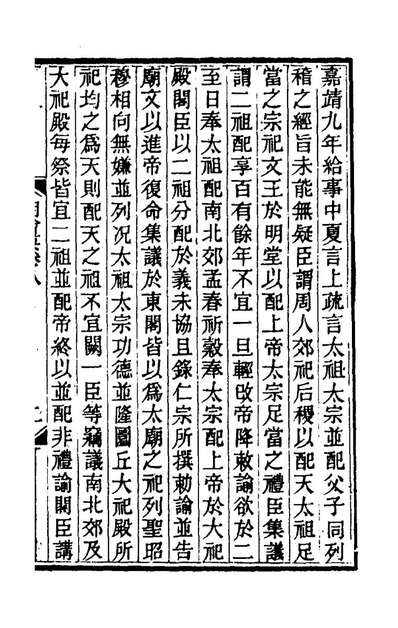 嘉靖九年給事中夏言上疏言太祖太宗並配父子同列
稽之經旨未能無疑臣謂周人郊祀后稷以配天太祖足
當之宗祀文王於明堂以配上帝太宗足當之禮臣集議
謂二祖配享百有餘年不宜一旦輕改帝降敕諭欲於二
至日奉太祖配南北郊孟春祈穀奉太宗配上帝於大祀
殿閣臣以二祖分配於義未協且錄仁宗所撰勅諭並告
廟文以進帝復命集議於東閣皆以爲太廟之祀列聖昭
穆相向無嫌並列况太祖太宗功德並隆圜丘大祀殿所
祀均之爲天則配天之祖不宜闕一臣等竊議南北郊及
大祀殿每祭皆宜二祖並配帝終以並配非禮諭閣臣講